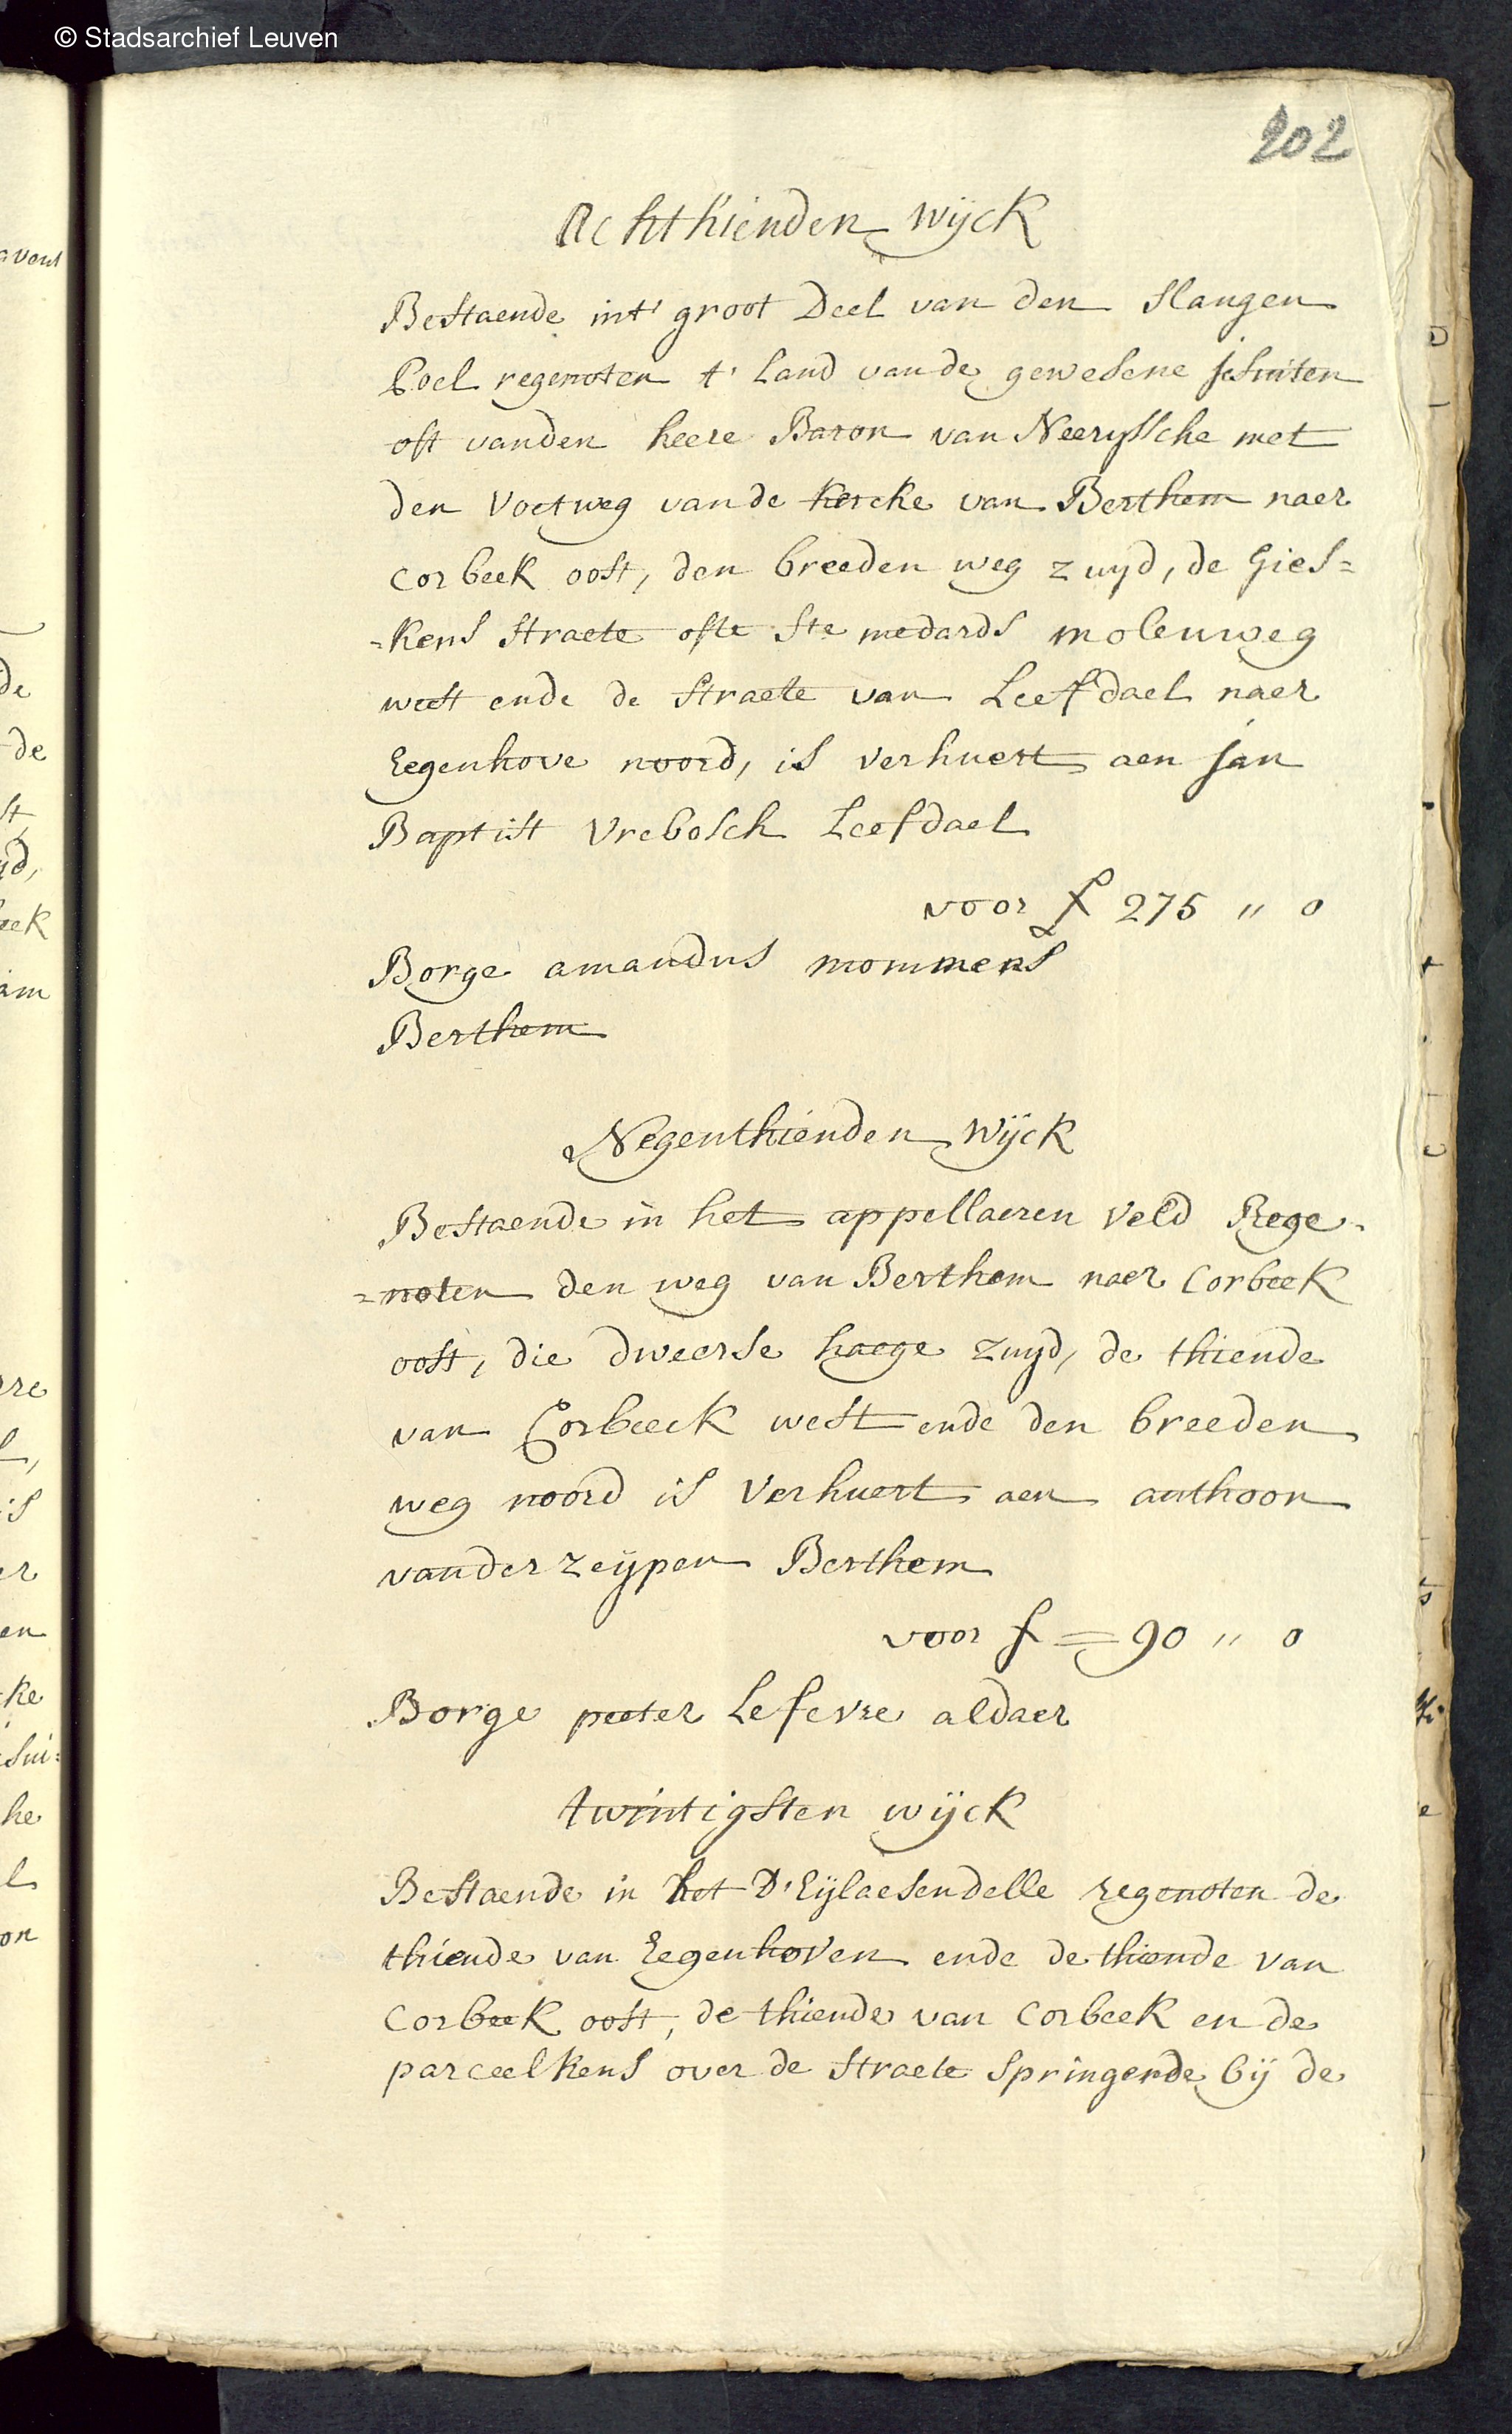 © Stadsarchief Leuven
202
Achthienden wijck
Bestaende int' groot Deel van den slangen
Poel regenoten t' Land vande gewesene jesuiten
oft vanden heere Baron van Neeryssche met
den voetweg vande kercke van Berthem naer
corbeek oost, den breeden weg zuyd, de Gies=
=kens straete ofte Ste medards molenweg
west ende de straete van Leefdael naer
Eegenhove noord, is verhuert aen jan
Baptist Vrebosch Leefdael
voor f 275 " 0
Borge amandus mommens
Berthem
Negenthienden wijck
Bestaende in het appellaeren veld Rege=
=noten den weg van Berthem naer Corbeek
oost, die dweerse haege zuyd, de thiende
van Corbeeck west ende den breeden
weg noord is verhuert aen anthoon
vander zeijpen Berthem
voor f = 90 " 0
Borge peeter Lefevre aldaer
twintigsten wijck
Bestaende in het D'Eijlaesendelle regenoten de
thiende van Eegenhoven ende de thiende van
Corbeek oost, de thiende van Corbeek en de
parceelkens over de straete springende bij de